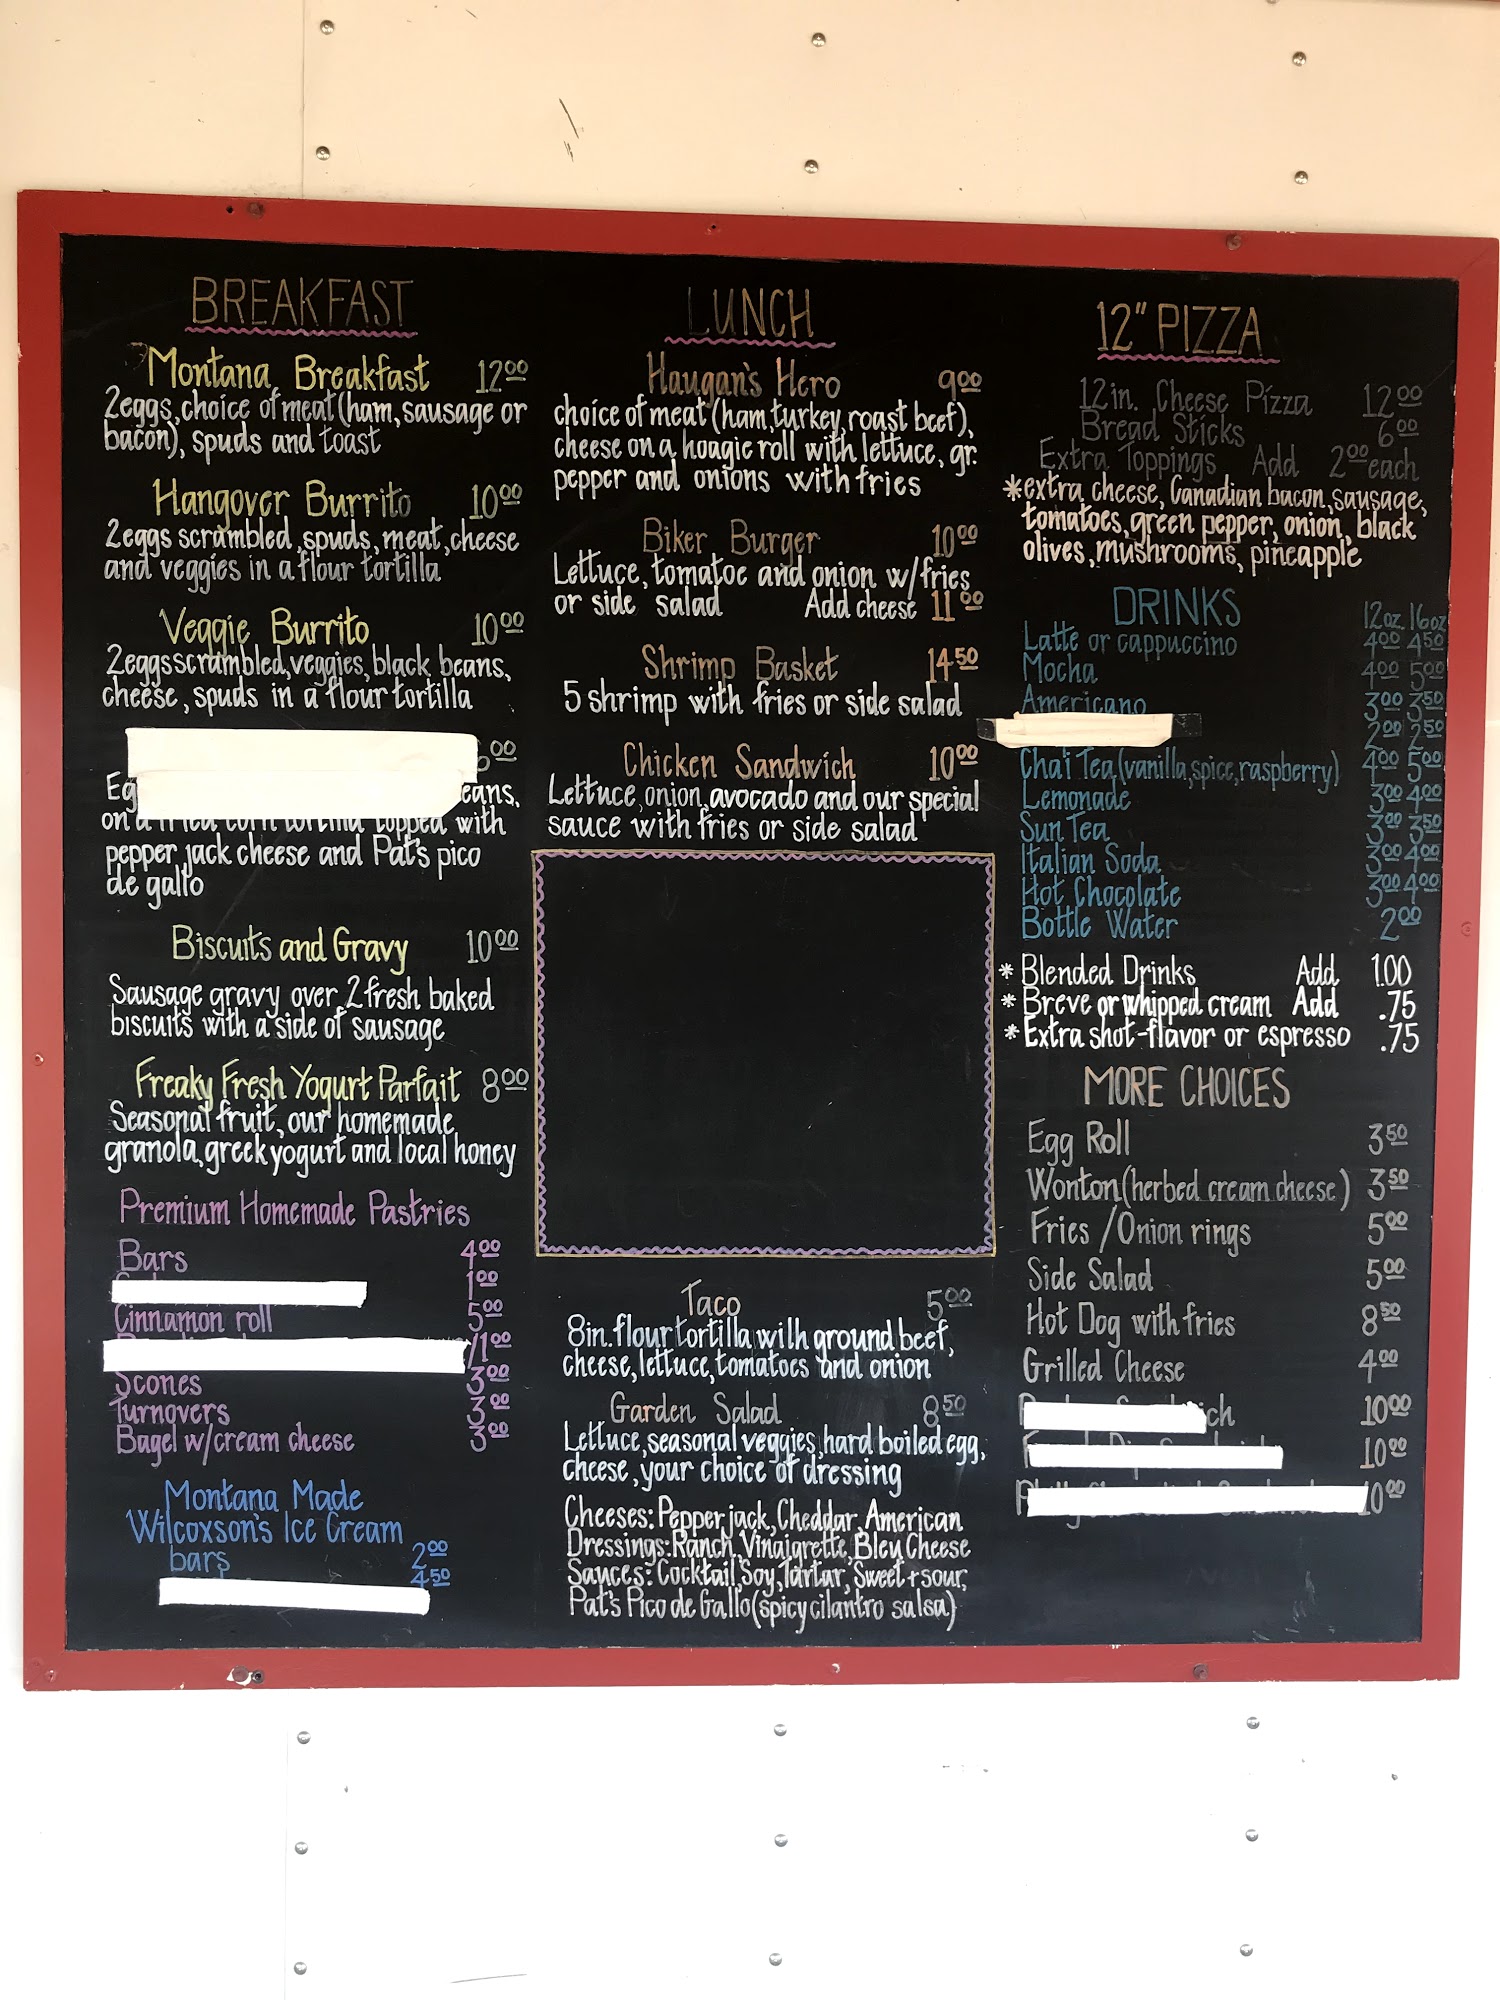 BREAKFAST
Montana Breakfast 12.00
2eggs, choice of meat (ham, sausage or
bacon), spuds and toast
Hangover Burrito 10.00
2eggs scrambled, spuds, meat, cheese
and veggies in a flour tortilla
Veggie Burrito 10.00
2eggs scrambled, veggies, black beans,
cheese, spuds in a flour tortilla
.00
Eg eans,
on a fried corn tortilla topped with
pepper jack cheese and Pat's pico
de gallo
Biscuits and Gravy 10.00
Sausage gravy over 2 fresh baked
biscuits with a side of sausage
Freaky Fresh Yogurt Parfait 8.00
Seasonal fruit, our homemade
granola, greek yogurt and local honey
Premium Homemade Pastries
Bars 4.00
1.00
Cinnamon roll 5.00
/1.00
Scones 3.00
Turnovers 3.00
Bagel w/cream cheese 3.00
Montana Made
Wilcoxson's Ice Cream
bars 2.00
4.50
LUNCH
Haugan's Hero 9.00
choice of meat (ham, turkey, roast beef),
cheese on a hoagie roll with lettuce, gr.
pepper and onions with fries
Biker Burger 10.00
Lettuce, tomatoe and onion w/fries
or side salad Add cheese 11.00
Shrimp Basket 14.50
5 shrimp with fries or side salad
Chicken Sandwich 10.00
Lettuce, onion, avocado and our special
sauce with fries or side salad
Taco 5.00
8in. flour tortilla with ground beef,
cheese, lettuce, tomatoes and onion
Garden Salad 8.50
Lettuce, seasonal veggies, hard boiled egg,
cheese, your choice of dressing
Cheeses: Pepper jack, Cheddar, American
Dressings: Ranch, Vinaigrette, Bleu Cheese
Sauces: Cocktail, Soy, Tartar, Sweet + sour,
Pat's Pico de Gallo (spicy cilantro salsa)
12" PIZZA
12in. Cheese Pizza 12.00
Bread Sticks 6.00
Extra Toppings Add 2.00 each
*extra cheese, Canadian bacon, sausage,
tomatoes, green pepper, onion, black
olives, mushrooms, pineapple
DRINKS 12oz. 16oz
Latte or cappuccino 4.00 4.50
Mocha 4.00 5.00
Americano 3.00 3.50
2.00 2.50
Chai Tea (vanilla, spice, raspberry) 4.00 5.00
Lemonade 3.00 4.00
Sun Tea 3.00 3.50
Italian Soda 3.00 4.00
Hot Chocolate 3.00 4.00
Bottle Water 2.00
* Blended Drinks Add 1.00
* Breve or whipped cream Add .75
* Extra shot-flavor or espresso .75
MORE CHOICES
Egg Roll 3.50
Wonton (herbed cream cheese) 3.50
Fries / Onion rings 5.00
Side Salad 5.00
Hot Dog with fries 8.50
Grilled Cheese 4.00
ich 10.00
10.00
10.00